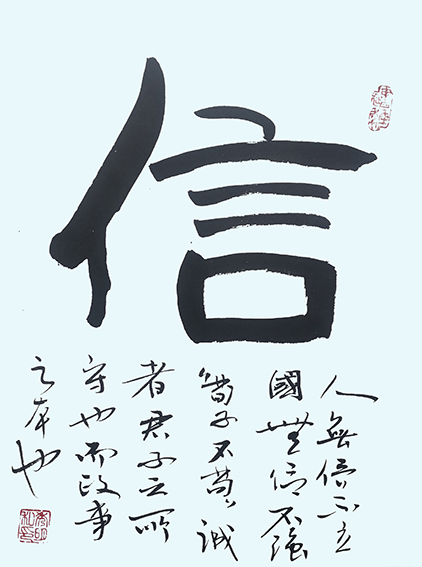 信
人無信不立
國無信不强
荀子不苟誠
者君子之所
守也而政事
之本也